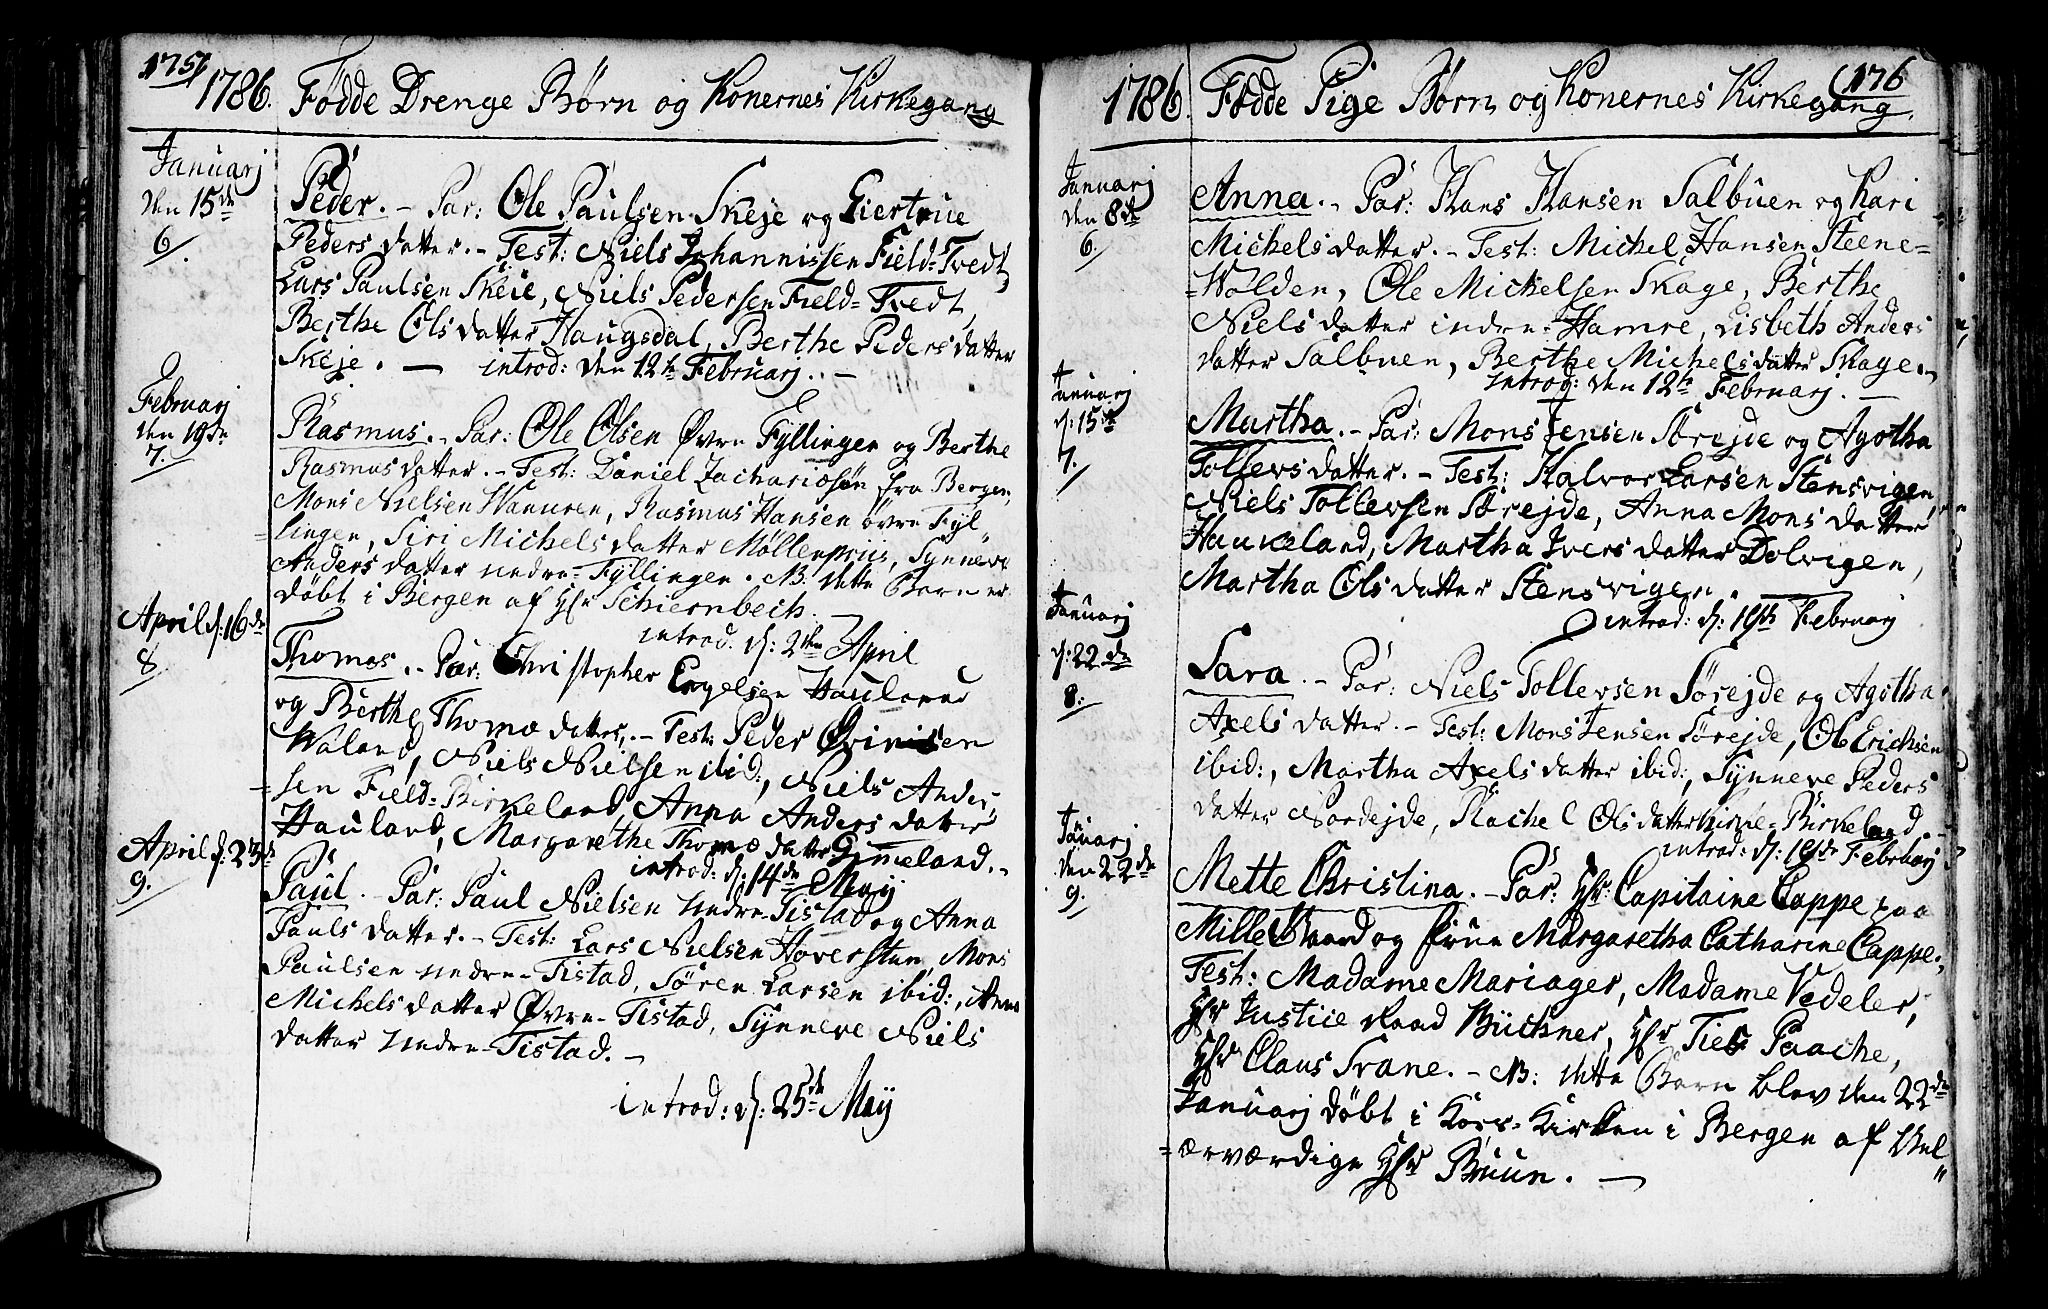 175
1786. Fødde Drenge Børn og Konernes Kirkegang
Januarj
den 15de
6.
Peder. - Par: Ole Paulsen Skeje og Giertrue
Peders datter. - Test: Niels Johannissen Field-Tvedt
Lars Paulsen Skeie, Niels Pedersen Field-Tvedt,
Berthe Ols datter Haugsdal, Berthe Peders datter
Skeje. - introd: den 12te Februarj. -
Februarj
den 19de
7.
Rasmus. - Par: Ole Olsen Øvre Fyllingen og Berthe
Rasmus datter. - Test: Daniel Zachariasøn fra Bergen,
Mons Nielsen, Rasmus Hansen øvre Fyl-
-lingen, Siri Michels datter Møllenpriis, Synneve
Anders datter nedre-Fyllingen. NB: dette Barn er
døbt i Bergen af Hr Schiernbech. -
introd: d: 2den April
April d: 16de
8
Thomas. - Par: Christopher Engelsen Hauland
og Berthe Thomæ datter. - Test: Peder
Waland, Niels Nielsen ibid:, Niels Ander-
-sen Field-Birkeland, Anna Anders datter
Hauland, Margarethe Thomæ datter Gimeland. -
introd: d: 14de Maj
April d: 23de
9.
Paul. - Par: Paul Nielsen Nedre-Tistad og Anna
Pauls datter. - Test: Lars Nielsen Hoversten, Mons
Paulsen nedre-Tistad, Søren Larsen ibid:, Anna
Michels datter Øvre-Tistad, Synneve Niels
datter Nedre-Tistad. -
introd: d: 25de May
176
1786. Fødde Pige Børn og Konernes Kirkegang.
Januarj
den 8de
6.
Anna. - Par: Hans Hansen Salbuen og Kari
Michels datter. - Test: Michel Hansen Steene-
-Wolden, Ole Michelsen Skage, Berthe
Niels datter indre-Hamre, Lisbeth Anders
datter Salbuen, Berthe Michels datter Skage. -
introd: den 12te Februarj. -
Januarj
d: 15de
7.
Martha. - Par: Mons Jensen Sørejde og Agotha
Tollevs datter. - Test: Halvor Larsen Stensvigen,
Niels Tollevsen Sørejde, Anna Mons datter
Haukeland, Martha Ivers datter Dolvigen,
Martha Ols datter Stensvigen.
introd: d: 19de Februarj
Januarj
d: 22de
8.
Sara. - Par: Niels Tollevsen Sørejde og Agotha
Axels datter. - Test: Mons Jensen Sørejde, Ole Ericksen
ibid:, Martha Axels datter ibid:, Synneve Peders
datter Nordejde, Rachel Ols datter Kirke-Birkeland. -
introd: d: 19de Februarj
Januarj
den 22de
9.
Mette Christina. - Par: Hr Capitaine Cappe paa
Mille Gaard og Frue Margaretha Catharine Cappe.,
Test: Madame Mariager, Madame Vedeler,
Hr Justice Raad Büchner, Hr Paache,
Hr Claus Svane. - NB: dette Barn blev den 22de
Januarj døbt i Kors-Kirken i Bergen af Vel
-ærværdige Hr Bruun. -